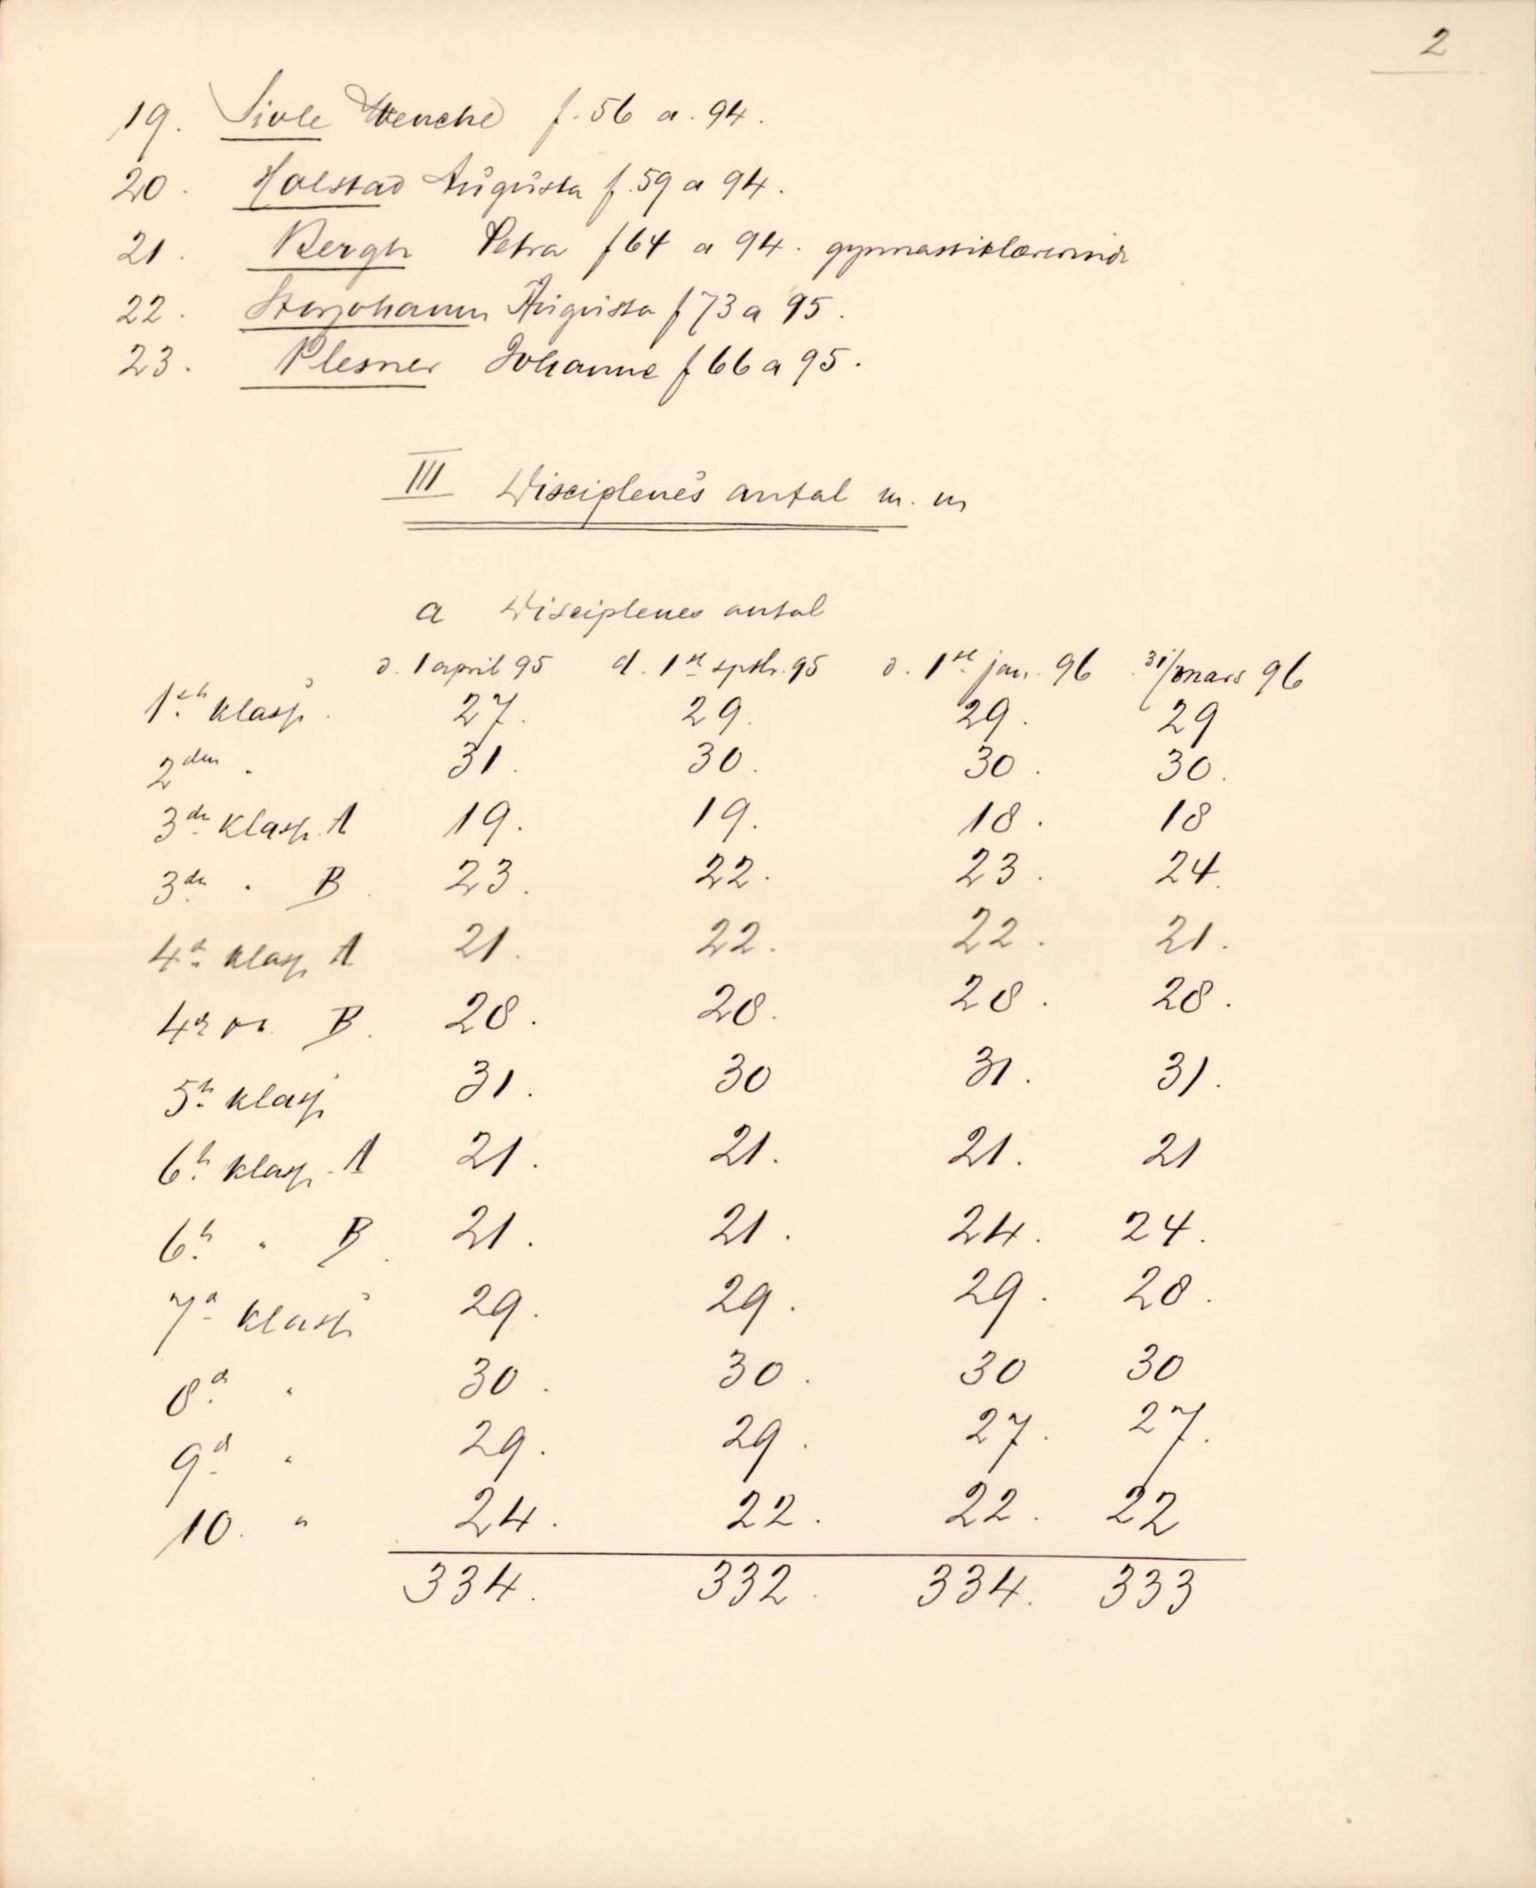 2
19. Sivle Wenche f. 56 a. 94.
20. Holstad Augusta f. 59 a 94.
21. Bergh Petra f 64 a 94. gymnastiklærerinde
22. Storjohann Augusta f 73 a 95.
23. Plesner Johanne f 66 a 95.
III Disciplenes antal m. m
a Disciplenes antal
d. 1 april 95 d. 1ste septbr. 95 d. 1ste jan. 96 31/mars 96
1ste klasse 27. 29. 29. 29
2den " 31. 30. 30. 30.
3die klasse A 19. 19. 18. 18
3die " B. 23. 22. 23. 24.
4de klasse A 21. 22. 22. 21.
4de B. 28. 28. 28. 28.
5te klasse 31. 30 31. 31.
6te klasse A 21. 21. 21. 21
6te " B. 21. 21. 24. 24.
7de klasse 29. 29. 29. 28.
8de " 30. 30. 30 30
9de " 29. 29. 27. 27.
10. " 24. 22. 22. 22
334. 332. 334. 333